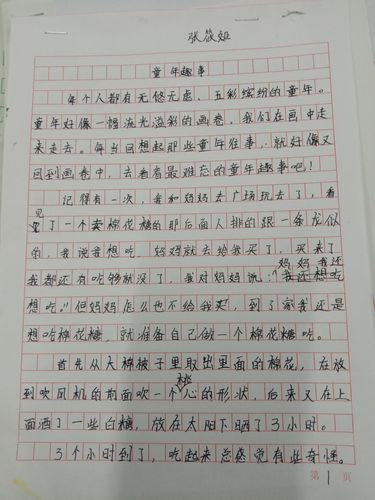 张筱姮
童年趣事
每个人都有无忧无虑、五彩缤纷的童年。
童年好像一幅流光溢彩的画卷,我们在画中走
来走去。每当回想起那些童年往事,就好像又
回到画卷中,去看看最难忘的童年趣事吧!
记得有一次,我和妈妈去广场玩去了,看
见了一个卖棉花糖的那后面人排的跟一条龙似
的,我说我想吃,妈妈就去给我买了,买来了
妈妈我还
我都还有吃够就没了,我对妈妈说:“我还想吃
想吃。”但妈妈怎么也不给我买,到了家我还是
想吃棉花糖,就准备自己做一个棉花糖吃。
首先从大棉被子里取出里面的棉花,在放
到吹风机的前面吹一个桃心的形状,后来又在上
面洒了一些白糖,放在太阳下晒了3小时。
3个小时到了,吃起来总感觉有些奇怪。
第1页